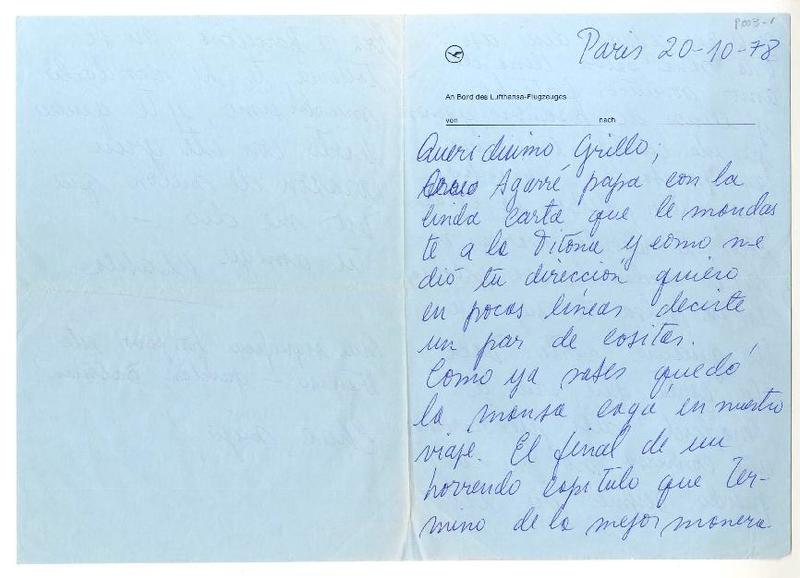 P003-1
Paris 20-10-78
An Bord des Lufthansa-Flugzeuges
von nach
Queridisimo Grillo;
Agarré papa con la
linda carta que le mandas
te a la Titona y como me
dió tu dirección quiero
en pocas líneas decirte
un par de cositas.
Como ya sabes quedó
la mansa cagá en nuestro
viaje. El final de un
horrendo capítulo que ter-
mino de la mejor manera.